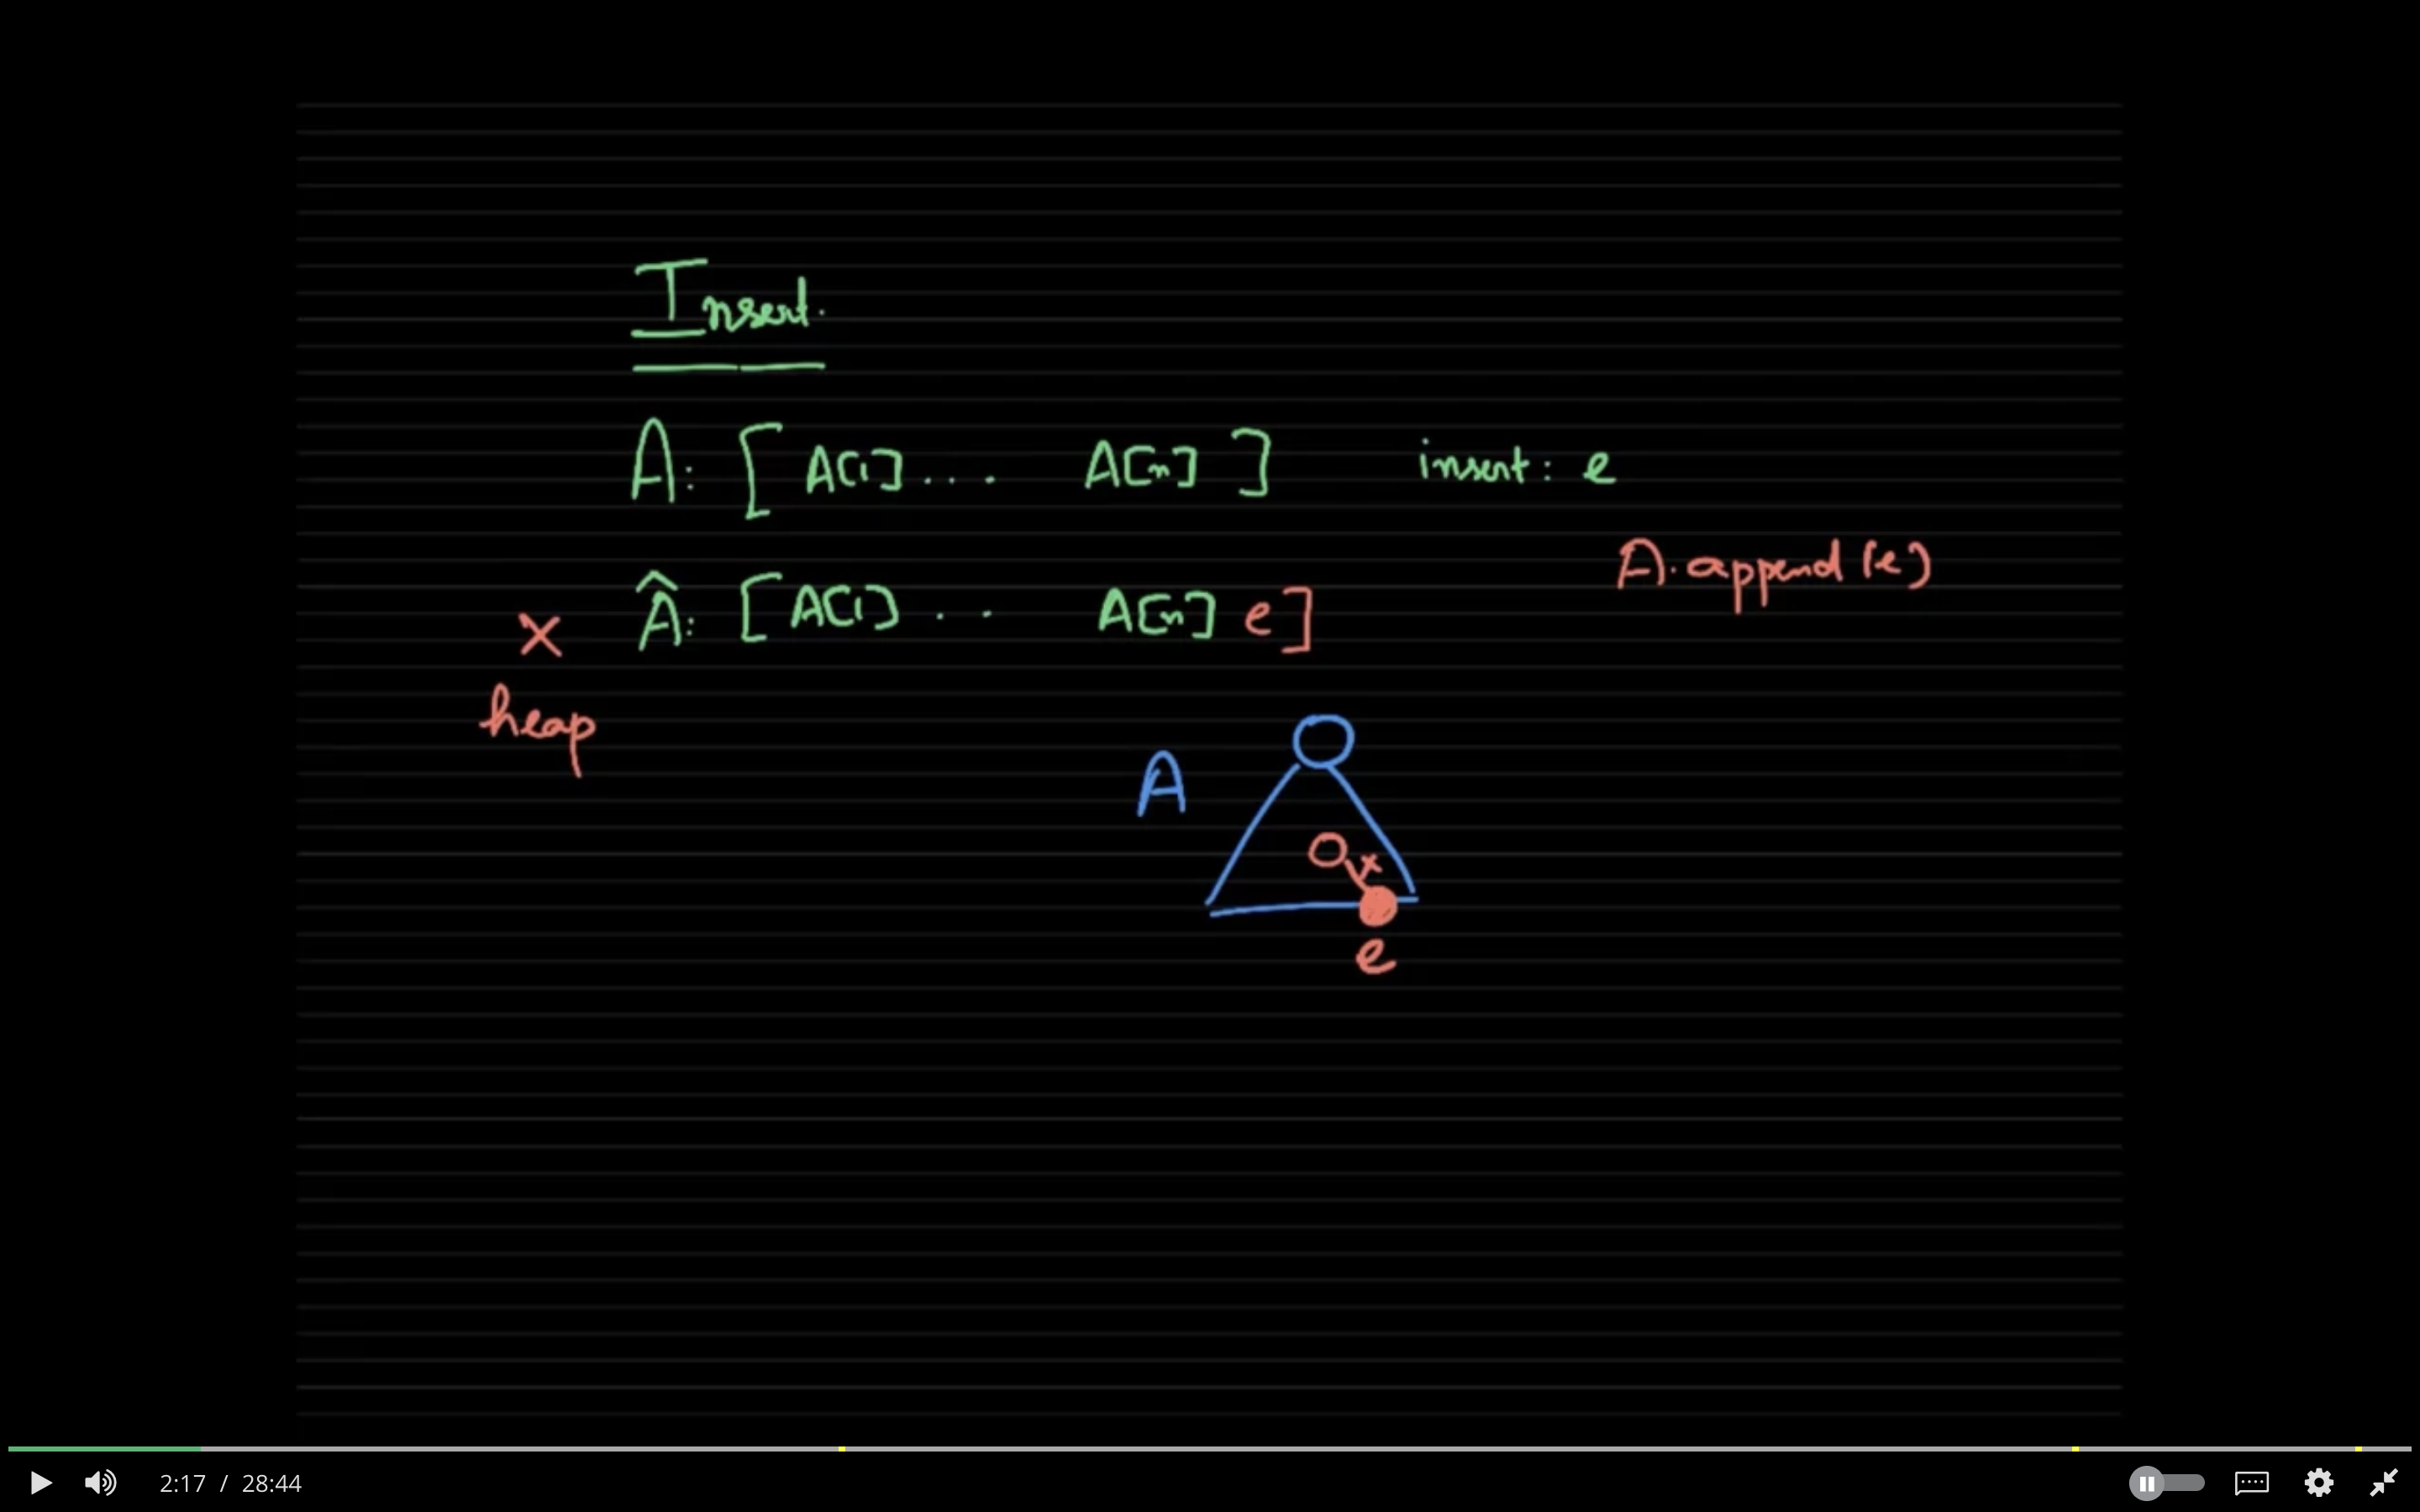 Insert.
A: [ A[1] ... A[n] ] insert: e
A.append(e)
x Â: [ A[1] .. A[n] e ]
heap
A
x
e
2:17 / 28:44